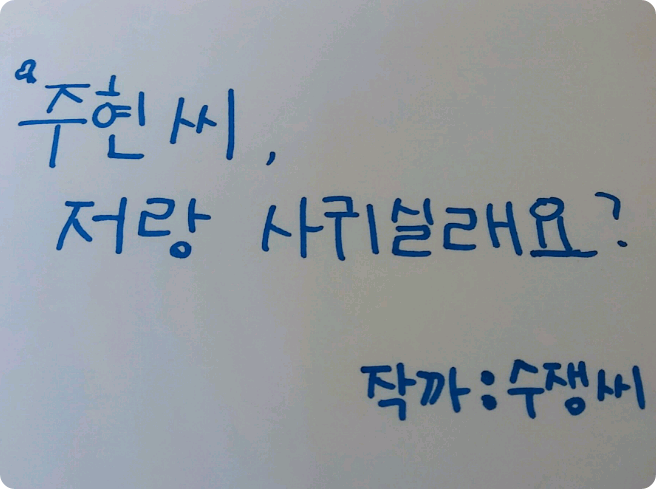 주현씨,
저랑 사귀실래요?
작까:수쟁씨